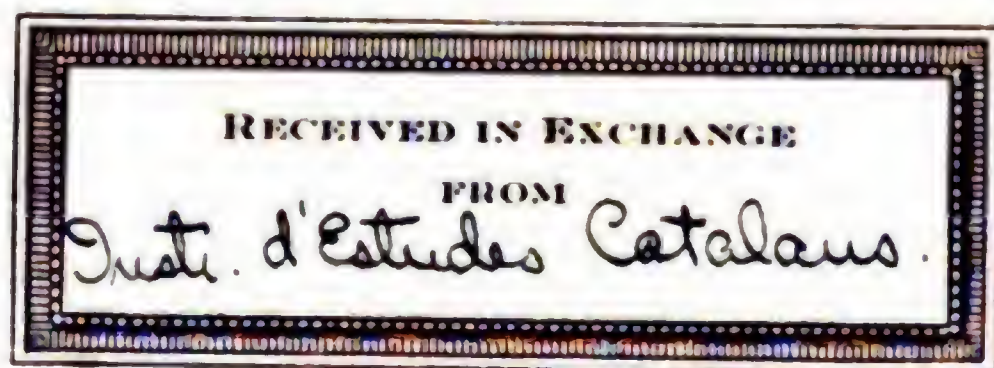 RECEIVED IN EXCHANGE
FROM
Insti. d'Estudes Catalans.